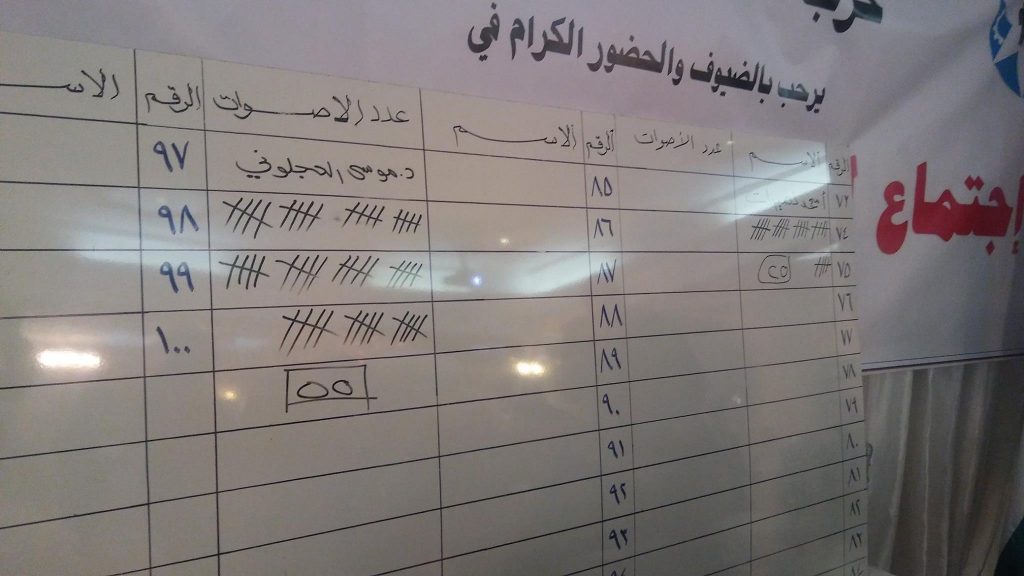 حزب
يرحب بالضيوف والحضور الكرام في
إجتماع
الرقم الاسم عدد الأصوات الرقم الاسم عدد الاصوات الرقم الاسـ
٧٢ أحمد
٧٤
٧٥ ٢٥
٧٦
٧٧
٧٨
٧٩
٨٠
٨١
٨٢
٨٣
٨٥ د. موسى العجلوني
٨٦
٨٧
٨٨
٨٩ ٥٥
٩٠
٩١
٩٢
٩٣
٩٤
٩٧
٩٨
٩٩
١٠٠